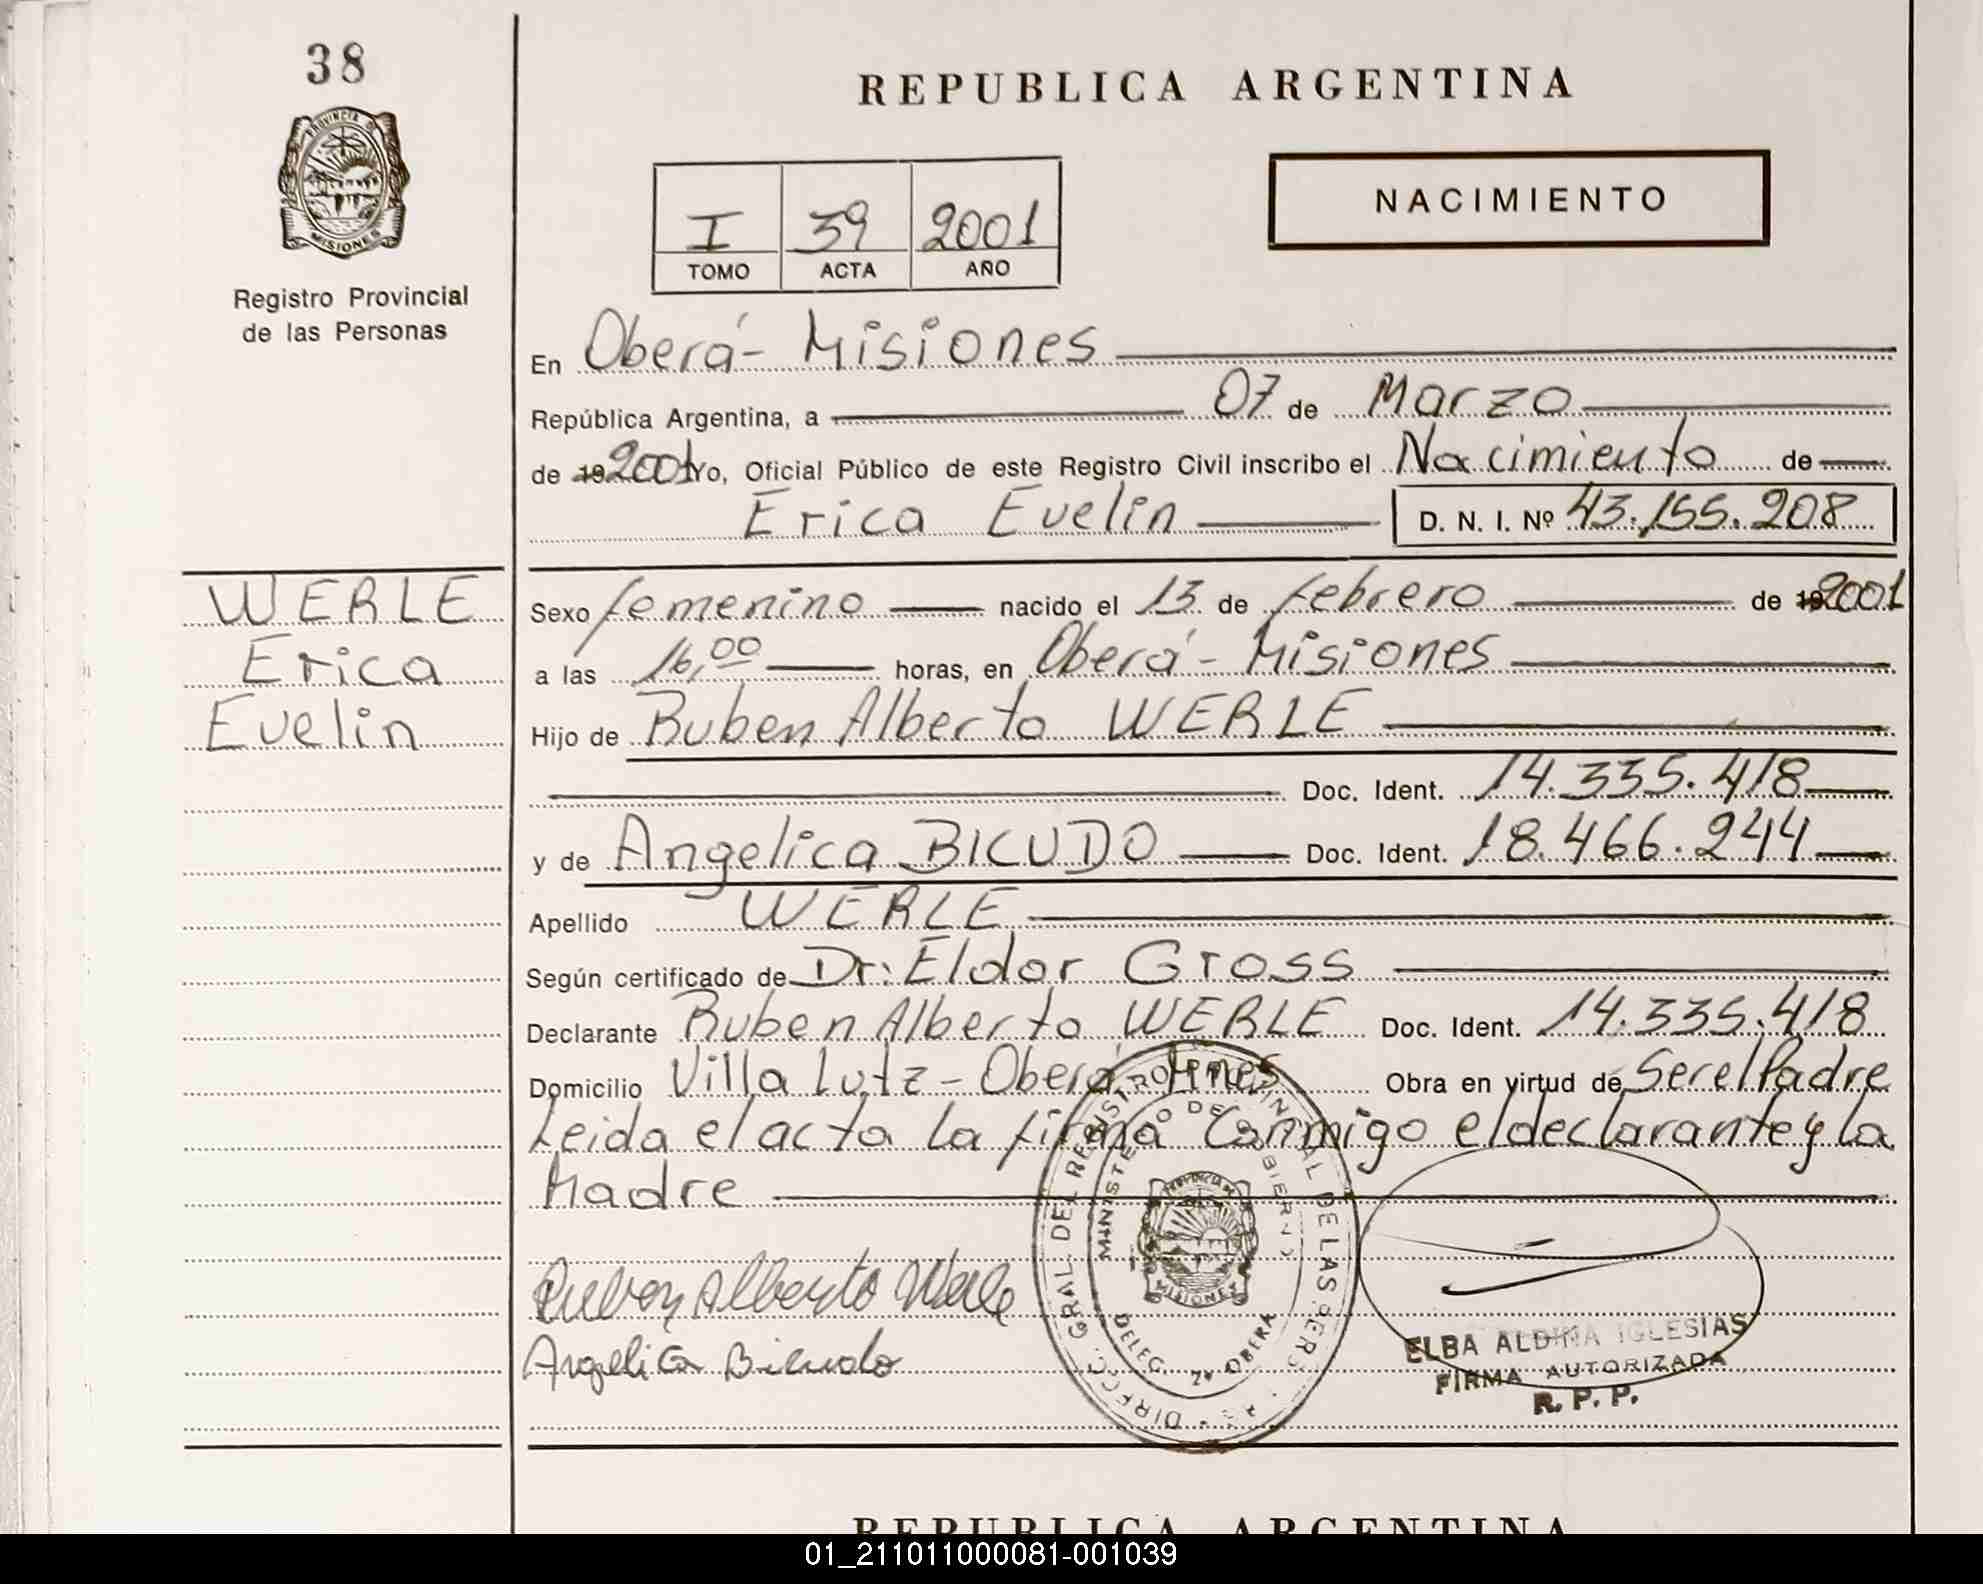 38
REPUBLICA ARGENTINA
PROVINCIA DE
MISIONES
Registro Provincial
de las Personas
I 39 2001
TOMO ACTA AÑO
NACIMIENTO
En Oberá - Misiones
República Argentina, a 07 de Marzo
de 19 2001 Yo, Oficial Público de este Registro Civil inscribo el Nacimiento de
Erica Evelin D. N. I. Nº 43.155.208
WERLE
Erica
Evelin
Sexo femenino nacido el 13 de febrero de 19 2001
a las 16,00 horas, en Oberá - Misiones
Hijo de Ruben Alberto WERLE
Doc. Ident. 14.335.418
y de Angelica BICUDO Doc. Ident. 18.466.244
Apellido WERLE
Según certificado de Dr: Eldor Gross
Declarante Ruben Alberto WERLE Doc. Ident. 14.335.418
Domicilio Villa Lutz - Oberá Mnes Obra en virtud de Ser el Padre
Leida el acta la firma Conmigo el declarante y la
Madre
Ruben Alberto Werle
Angelica Bicudo
MINISTERIO DE GOBIERNO
PROVINCIA DE
MISIONES
DELEG. OBERA
ELBA ALDINA IGLESIAS
FIRMA AUTORIZADA
R. P. P.
REPUBLICA ARGENTINA
01_211011000081-001039